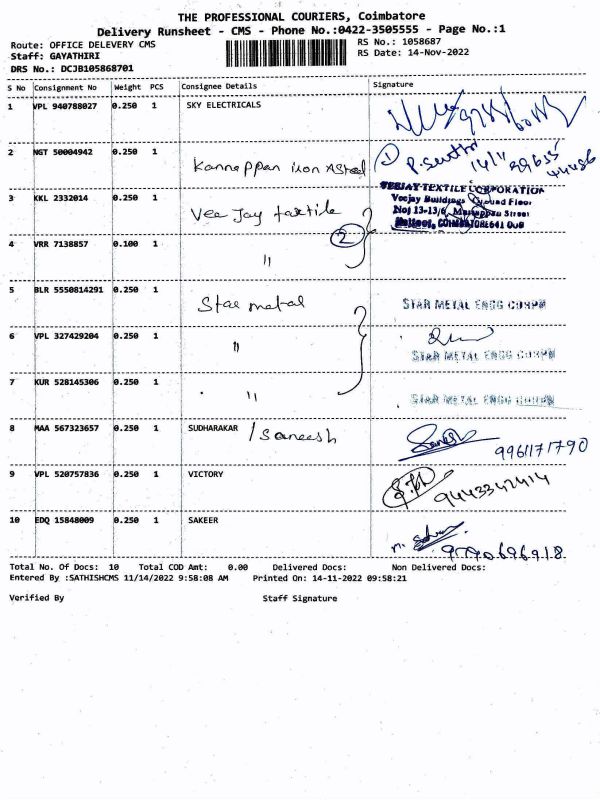 THE PROFESSIONAL COURIERS, Coimbatore
Delivery Runsheet - CMS - Phone No.:0422-3505555 - Page No.:1
Route: OFFICE DELEVERY CMS
RS No.: 1058687
Staff: GAYATHIRI
RS Date: 14-Nov-2022
DRS No.: DCJB105868701
S No Consignment No Weight PCS Consignee Details Signature
1 VPL 940788027 0.250 1 SKY ELECTRICALS
2 NGT 50004942 0.250 1 Kannappan iron &Steel 1 P. 14/11 99655
44486
3 KKL 2332014 0.250 1 Vee Jay textile VEEJAY TEXTILE CORPORATION
Veejay Buildings Ground Floor
No; 13-13/6, Mariappan Street
COIMBATORE 641 008
4 VRR 7138857 0.100 1 " 2
5 BLR 5550814291 0.250 1 Star metal STAR METAL ENGG CORPN
6 VPL 327429204 0.250 1 " STAR METAL ENGG CORPN
7 KUR 528145306 0.250 1 " STAR METAL ENGG CORPN
8 MAA 567323657 0.250 1 SUDHARAKAR / Saneesh 9961171790
9 VPL 520757836 0.250 1 VICTORY 9443342414
10 EDQ 15848009 0.250 1 SAKEER 9790696918
Total No. Of Docs: 10 Total COD Amt: 0.00 Delivered Docs: Non Delivered Docs:
Entered By :SATHISHCMS 11/14/2022 9:58:08 AM Printed On: 14-11-2022 09:58:21
Verified By Staff Signature